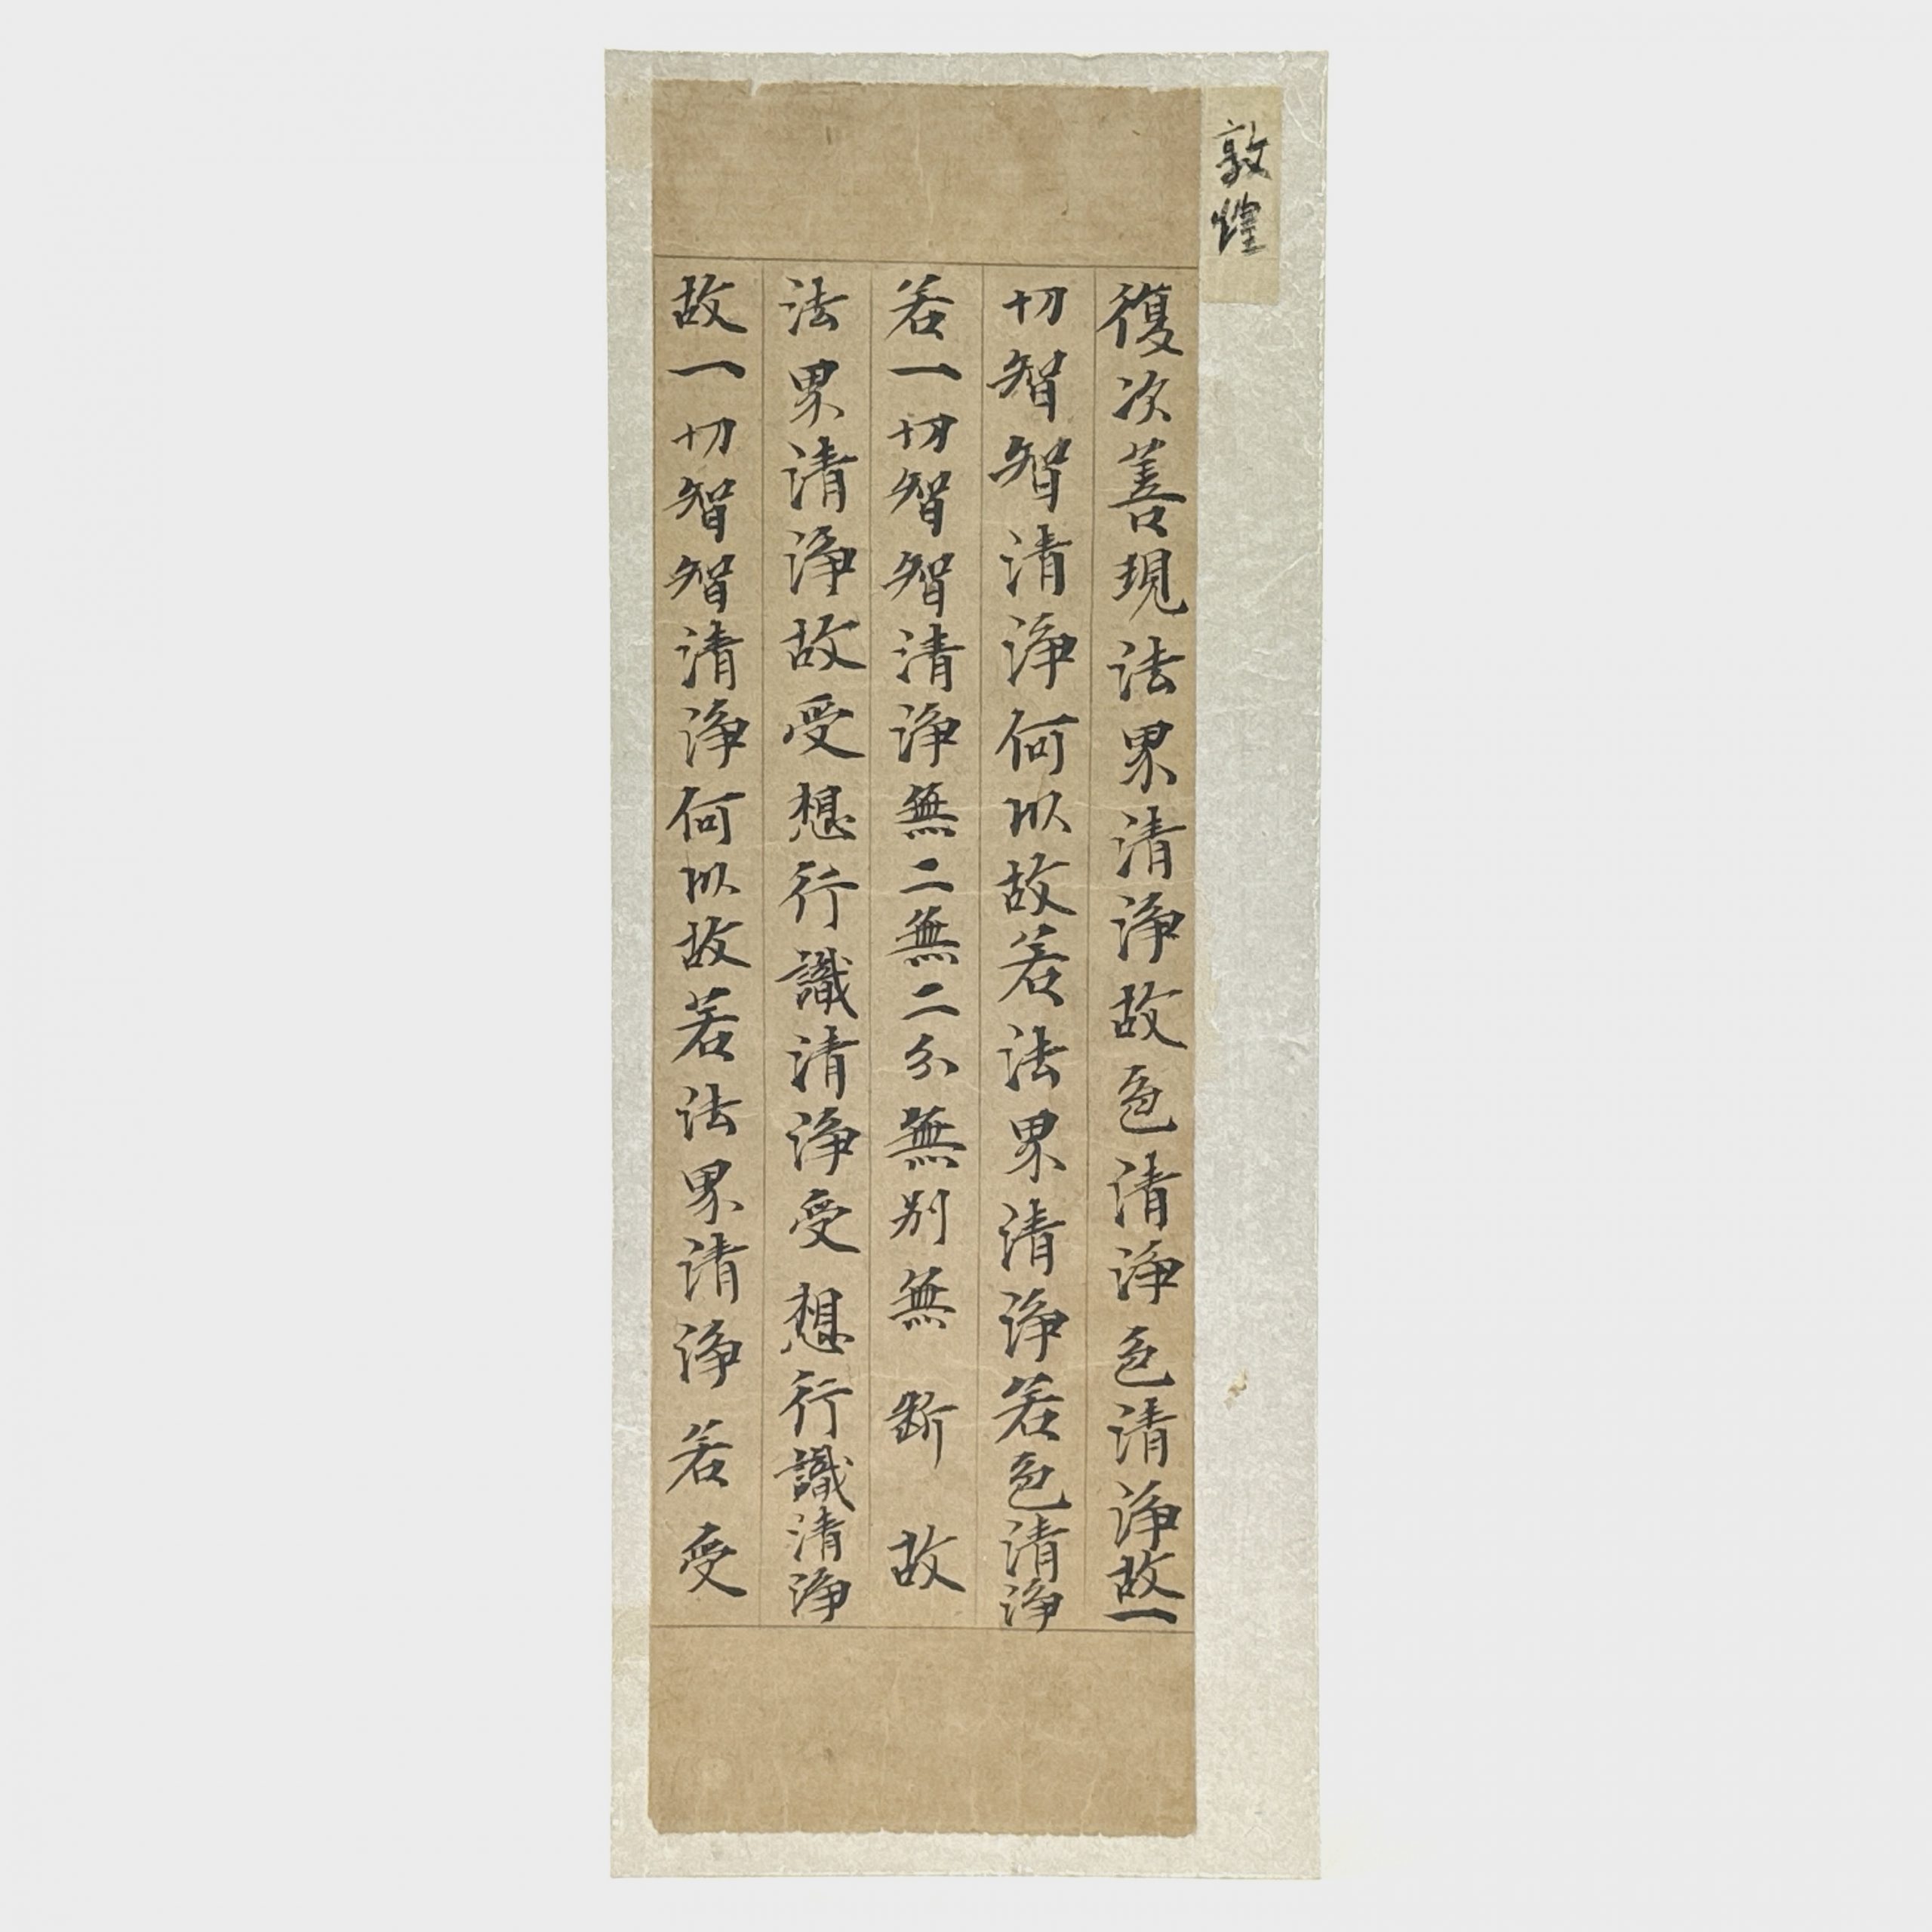 敦煌
復次善現法界清淨故色清淨色清淨故一
切智智清淨何以故若法界清淨若色清淨
若一切智智清淨無二無二分無別無断故
法界清淨故受想行識清淨受想行識清淨
故一切智智清淨何以故若法界清淨若受